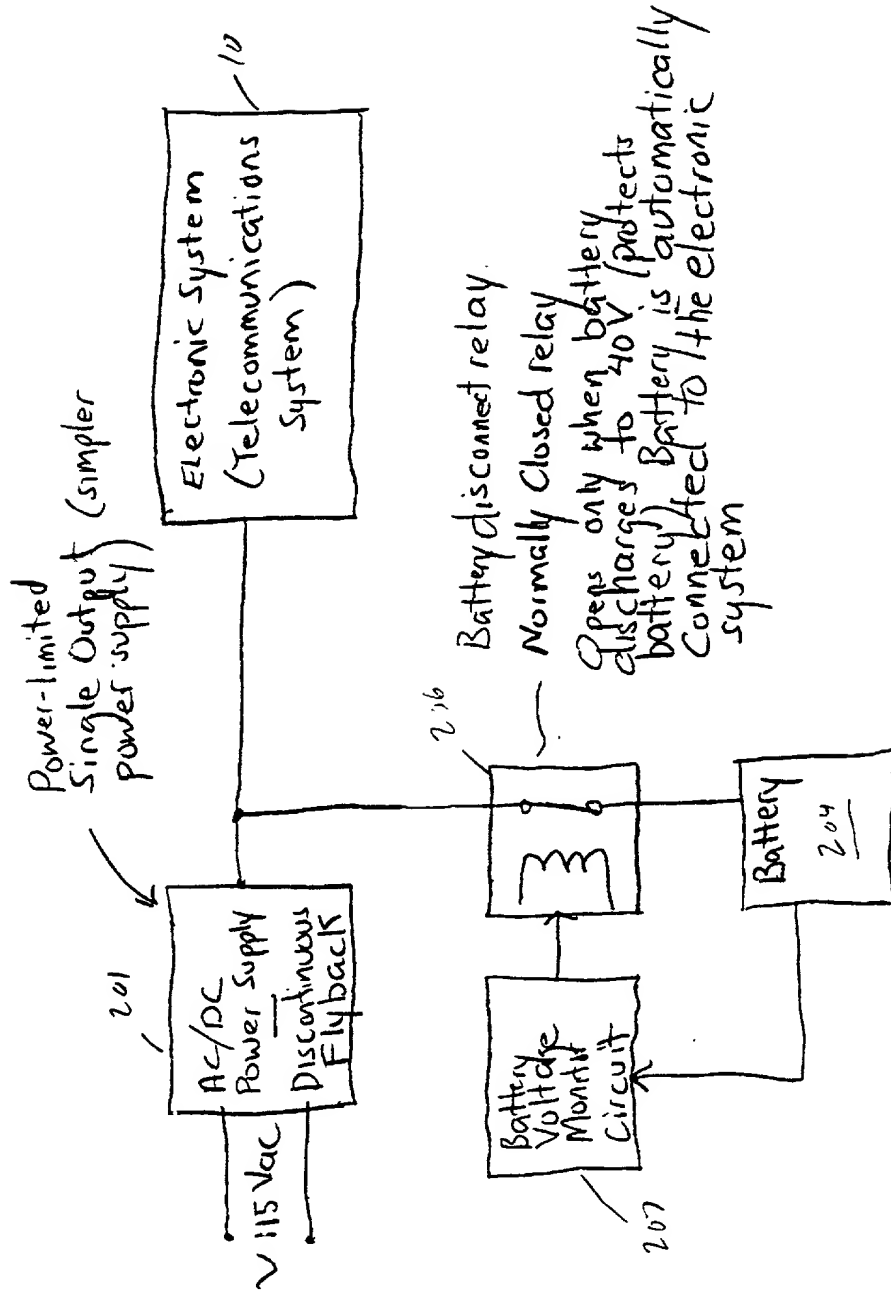 Power-limited
Single Output (simpler
power supply)
201
AC/DC
Power Supply
Discontinuous
Flyback
~ 115 Vac
10
Electronic System
(Telecommunications
System)
206
Battery disconnect relay.
Normally Closed relay
Opens only when battery
discharges to 40V (protects
battery) Battery is automatically
Connected to the electronic
system
207
Battery
Voltage
Monitor
Circuit
Battery
204